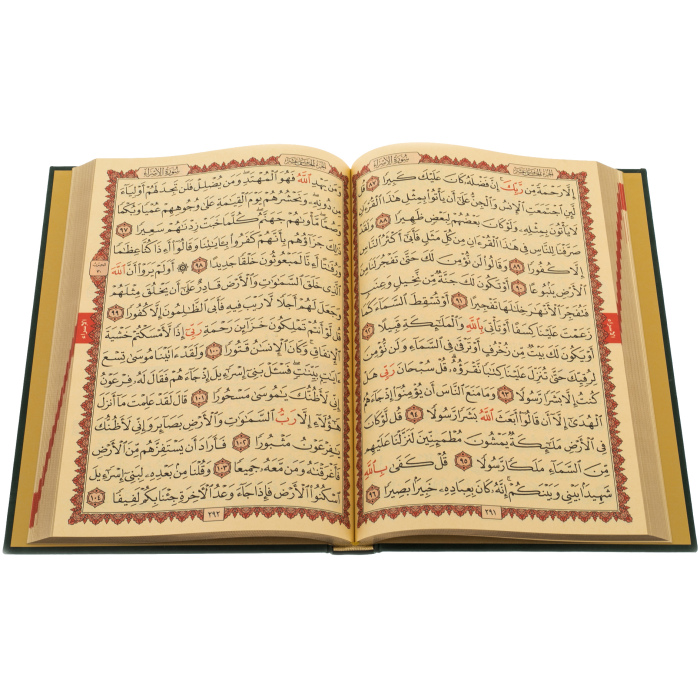 سُورَةُ الْإِسْرَاءِ
إِلَّا رَحْمَةً مِّن رَّبِّكَ إِنَّ فَضْلَهُۥ كَانَ عَلَيْكَ كَبِيرًا ٨٧ قُل
لَّئِنِ ٱجْتَمَعَتِ ٱلْإِنسُ وَٱلْجِنُّ عَلَىٰٓ أَن يَأْتُوا۟ بِمِثْلِ هَٰذَا ٱلْقُرْءَانِ
لَا يَأْتُونَ بِمِثْلِهِۦ وَلَوْ كَانَ بَعْضُهُمْ لِبَعْضٍ ظَهِيرًا ٨٨ وَلَقَدْ
صَرَّفْنَا لِلنَّاسِ فِى هَٰذَا ٱلْقُرْءَانِ مِن كُلِّ مَثَلٍ فَأَبَىٰٓ أَكْثَرُ ٱلنَّاسِ
إِلَّا كُفُورًا ٨٩ وَقَالُوا۟ لَن نُّؤْمِنَ لَكَ حَتَّىٰ تَفْجُرَ لَنَا مِنَ
ٱلْأَرْضِ يَنۢبُوعًا ٩٠ أَوْ تَكُونَ لَكَ جَنَّةٌ مِّن نَّخِيلٍ وَعِنَبٍ
فَتُفَجِّرَ ٱلْأَنْهَٰرَ خِلَٰلَهَا تَفْجِيرًا ٩١ أَوْ تُسْقِطَ ٱلسَّمَآءَ كَمَا
زَعَمْتَ عَلَيْنَا كِسَفًا أَوْ تَأْتِىَ بِٱللَّهِ وَٱلْمَلَٰٓئِكَةِ قَبِيلًا ٩٢
أَوْ يَكُونَ لَكَ بَيْتٌ مِّن زُخْرُفٍ أَوْ تَرْقَىٰ فِى ٱلسَّمَآءِ وَلَن نُّؤْمِنَ
لِرُقِيِّكَ حَتَّىٰ تُنَزِّلَ عَلَيْنَا كِتَٰبًا نَّقْرَؤُهُۥ قُلْ سُبْحَانَ رَبِّى هَلْ
كُنتُ إِلَّا بَشَرًا رَّسُولًا ٩٣ وَمَا مَنَعَ ٱلنَّاسَ أَن يُؤْمِنُوٓا۟ إِذْ جَآءَهُمُ
ٱلْهُدَىٰٓ إِلَّآ أَن قَالُوٓا۟ أَبَعَثَ ٱللَّهُ بَشَرًا رَّسُولًا ٩٤ قُل لَّوْ كَانَ
فِى ٱلْأَرْضِ مَلَٰٓئِكَةٌ يَمْشُونَ مُطْمَئِنِّينَ لَنَزَّلْنَا عَلَيْهِم
مِّنَ ٱلسَّمَآءِ مَلَكًا رَّسُولًا ٩٥ قُلْ كَفَىٰ بِٱللَّهِ
شَهِيدًۢا بَيْنِى وَبَيْنَكُمْ إِنَّهُۥ كَانَ بِعِبَادِهِۦ خَبِيرًۢا بَصِيرًا ٩٦
٢٩١
سُورَةُ الْإِسْرَاءِ
وَمَن يَهْدِ ٱللَّهُ فَهُوَ ٱلْمُهْتَدِ وَمَن يُضْلِلْ فَلَن تَجِدَ لَهُمْ أَوْلِيَآءَ
مِن دُونِهِۦ وَنَحْشُرُهُمْ يَوْمَ ٱلْقِيَٰمَةِ عَلَىٰ وُجُوهِهِمْ عُمْيًا وَبُكْمًا
وَصُمًّا مَّأْوَىٰهُمْ جَهَنَّمُ كُلَّمَا خَبَتْ زِدْنَٰهُمْ سَعِيرًا ٩٧
ذَٰلِكَ جَزَآؤُهُم بِأَنَّهُمْ كَفَرُوا۟ بِـَٔايَٰتِنَا وَقَالُوٓا۟ أَءِذَا كُنَّا عِظَٰمًا
وَرُفَٰتًا أَءِنَّا لَمَبْعُوثُونَ خَلْقًا جَدِيدًا ٩٨ ۞ أَوَلَمْ يَرَوْا۟ أَنَّ ٱللَّهَ
ٱلَّذِى خَلَقَ ٱلسَّمَٰوَٰتِ وَٱلْأَرْضَ قَادِرٌ عَلَىٰٓ أَن يَخْلُقَ مِثْلَهُمْ
وَجَعَلَ لَهُمْ أَجَلًا لَّا رَيْبَ فِيهِ فَأَبَى ٱلظَّٰلِمُونَ إِلَّا كُفُورًا ٩٩
قُل لَّوْ أَنتُمْ تَمْلِكُونَ خَزَآئِنَ رَحْمَةِ رَبِّىٓ إِذًا لَّأَمْسَكْتُمْ خَشْيَةَ
ٱلْإِنفَاقِ وَكَانَ ٱلْإِنسَٰنُ قَتُورًا ١٠٠ وَلَقَدْ ءَاتَيْنَا مُوسَىٰ تِسْعَ
ءَايَٰتٍۭ بَيِّنَٰتٍ فَسْـَٔلْ بَنِىٓ إِسْرَٰٓءِيلَ إِذْ جَآءَهُمْ فَقَالَ لَهُۥ فِرْعَوْنُ
إِنِّى لَأَظُنُّكَ يَٰمُوسَىٰ مَسْحُورًا ١٠١ قَالَ لَقَدْ عَلِمْتَ مَآ أَنزَلَ
هَٰٓؤُلَآءِ إِلَّا رَبُّ ٱلسَّمَٰوَٰتِ وَٱلْأَرْضِ بَصَآئِرَ وَإِنِّى لَأَظُنُّكَ
يَٰفِرْعَوْنُ مَثْبُورًا ١٠٢ فَأَرَادَ أَن يَسْتَفِزَّهُم مِّنَ ٱلْأَرْضِ
فَأَغْرَقْنَٰهُ وَمَن مَّعَهُۥ جَمِيعًا ١٠٣ وَقُلْنَا مِنۢ بَعْدِهِۦ لِبَنِىٓ إِسْرَٰٓءِيلَ
ٱسْكُنُوا۟ ٱلْأَرْضَ فَإِذَا جَآءَ وَعْدُ ٱلْءَاخِرَةِ جِئْنَا بِكُمْ لَفِيفًا ١٠٤
٢٩٢